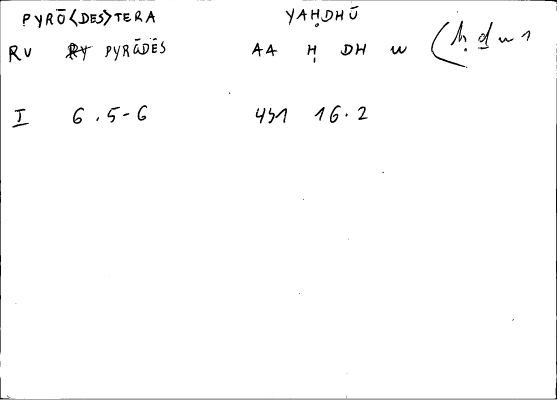 PYRŌ<DES>TERA YAḤDHŪ
RV PYRŌDĒS AA Ḥ DH W (ḥ ḏ w 1
I 6.5-6 451 16.2